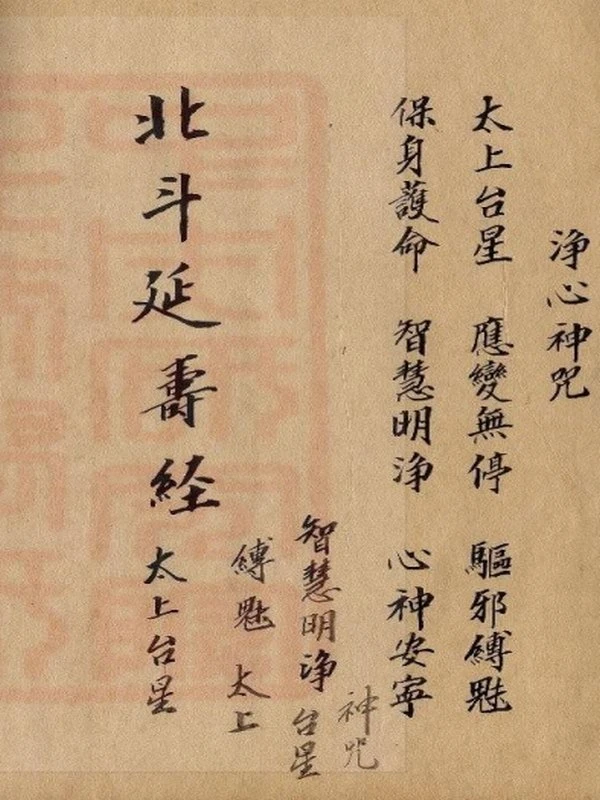 浄心神咒
太上台星 應變無停 驅邪縛魅
保身護命 智慧明浄 心神安寧
神咒
智慧明浄 台星
縛魅 太上
北斗延壽経 太上台星